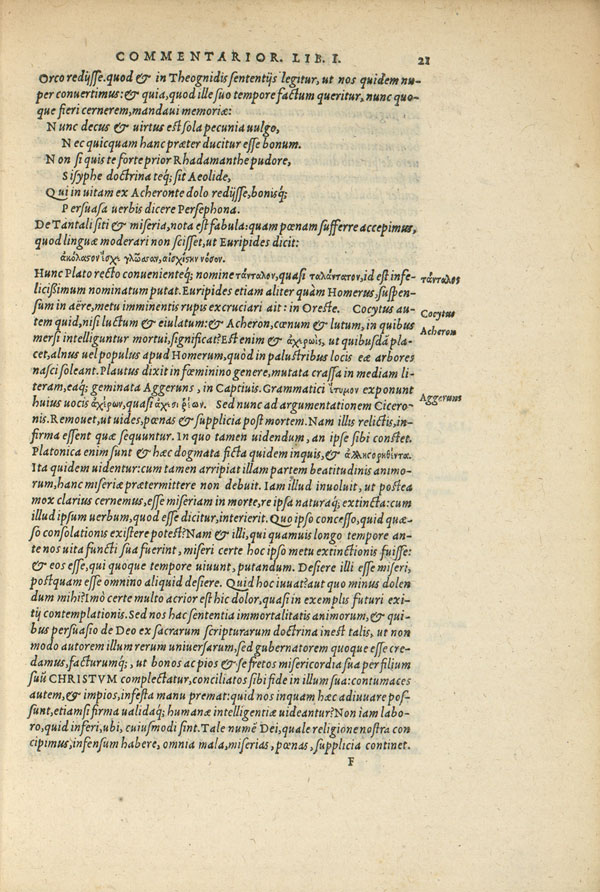 COMMENTARIOR. LIB. I. 21
Orco redijsse. quod & in Theognidis sententijs legitur, ut nos quidem nu-
per conuertimus: & quia, quod ille suo tempore factum queritur, nunc quo-
que fieri cernerem, mandaui memoriæ:
Nunc decus & uirtus est sola pecunia uulgo,
Nec quicquam hanc præter ducitur esse bonum.
Non si quis te forte prior Rhadamanthe pudore,
Sisyphe doctrina teq́; sit Aeolide,
Qui in uitam ex Acheronte dolo redijsse, bonisq́;
Persuasa uerbis dicere Persephona.
De Tantali siti & miseria, nota est fabula: quam pœnam sufferre accepimus,
quod linguæ moderari non scisset, ut Euripides dicit:
ἀκόλασον ἴσχι γλῶσσαν, αἰσχίσκην νόσον.
Hunc Plato recto conuenienteq́; nomine τάνταλον, quasi ταλάντατον, id est infe-
τάνταλος
licißimum nominatum putat. Euripides etiam aliter quàm Homerus, suspen-
sum in aëre, metu imminentis rupis excruciari ait: in Oreste. Cocytus au-
Cocytus
tem quid, nisi luctum & eiulatum: & Acheron, cœnum & lutum, in quibus
Acheron
mersi intelliguntur mortui, significat? Est enim & ἀχερωὶς, ut quibusdā pla-
cet, alnus uel populus apud Homerum, quòd in palustribus locis eæ arbores
nasci soleant. Plautus dixit in fœminino genere, mutata crassa in mediam li-
teram, eaq́; geminata Aggeruns, in Captiuis. Grammatici ἔτυμον exponunt
Aggeruns
huius uocis ἀχέρων, quasi ἄχεσι ῥέων. Sed nunc ad argumentationem Cicero-
nis. Remouet, ut uides, pœnas & supplicia post mortem. Nam illis relictis, in-
firma essent quæ sequuntur. In quo tamen uidendum, an ipse sibi constet.
Platonica enim sunt & hæc dogmata ficta quidem inquis, &
Ita quidem uidentur: cum tamen arripiat illam partem beatitudinis animo-
rum, hanc miseriæ prætermittere non debuit. Iam illud inuoluit, ut postea
mox clarius cernemus, esse miseriam in morte, re ipsa naturaq́; extincta: cum
illud ipsum uerbum, quod esse dicitur, interierit. Quo ipso concesso, quid quæ-
so consolationis existere potest? Nam & illi, qui quamuis longo tempore an-
te nos uita functi sua fuerint, miseri certe hoc ipso metu extinctionis fuisse:
& eos esse, qui quoque tempore uiuunt, putandum. Desiere illi esse miseri,
postquam esse omnino aliquid desiere. Quid hoc iuuat? aut quo minus dolen
dum mihi? Imò certe multo acrior est hic dolor, quasi in exemplis futuri exi-
tij contemplationis. Sed nos hac sententia immortalitatis animorum, & qui-
bus persuasio de Deo ex sacrarum scripturarum doctrina inest talis, ut non
modo autorem illum rerum uniuersarum, sed gubernatorem quoque esse cre-
damus, facturumq́;, ut bonos ac pios & se fretos misericordia sua per filium
suū CHRISTVM complectatur, conciliatos sibi fide in illum sua: contumaces
autem, & impios, infesta manu premat: quid nos inquam hæc adiuuare pos-
sunt, etiamsi firma ualidaq́; humanæ intelligentiæ uideantur? Non iam labo-
ro, quid inferi, ubi, cuiusmodi sint. Tale numē Dei, quale religione nostra con
cipimus, infensum habere, omnia mala, miserias, pœnas, supplicia continet.
F